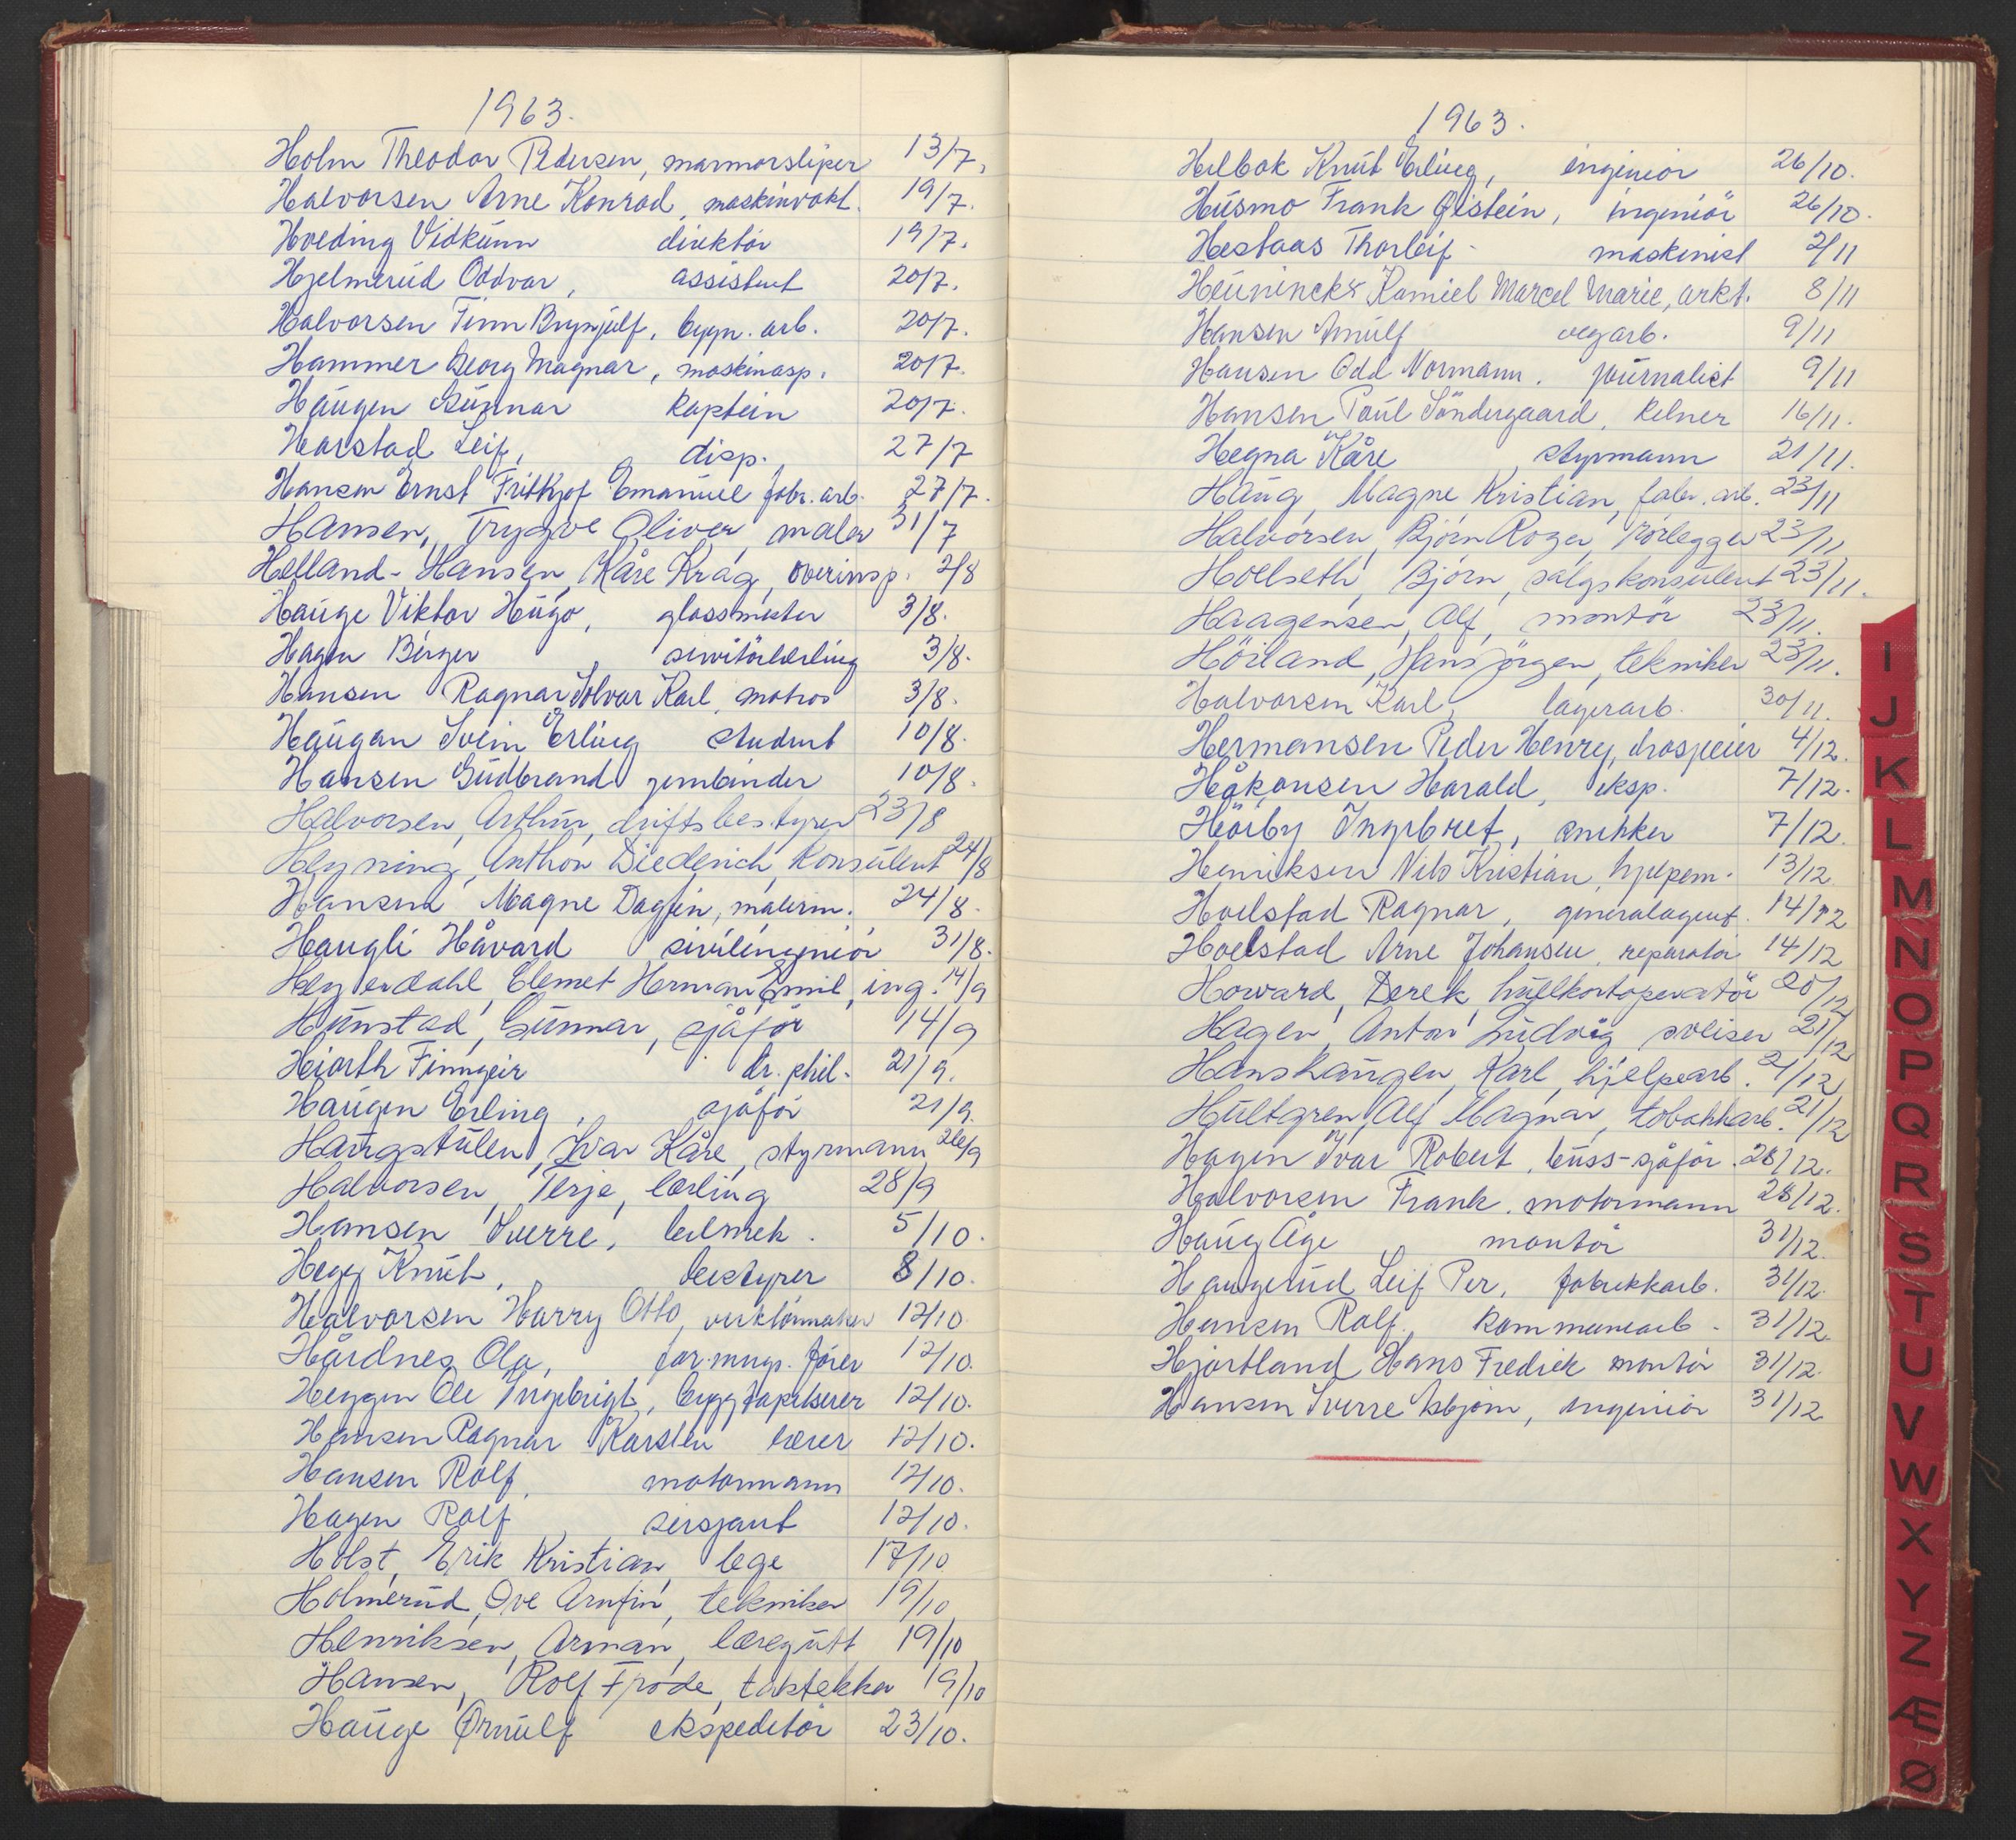 1963.
Holm Theodor Pedersen, marmorsliper 13/7.
Halvorsen Arne Konrad, maskinvakt. 19/7.
Hveding Vidkunn direktör 19/7.
Hjelmerud Oddvar, assistent 20/7.
Halvorsen Finn Brynjulf, bygn. arb. 20/7.
Hammer Georg Magnar, maskinasp. 20/7.
Haugen Gunnar kaptein 20/7.
Harstad Leif, disp. 27/7
Hansen Ernst Frithjof Emanuel fabr. arb. 27/7.
Hansen, Trygve Oliver, maler 31/7
Helland-Hansen, Kåre Krag, overinsp. 2/8
Hauge Viktor Hugo, glassmester 3/8.
Hagen Birger servitörlærling 3/8.
Hansen Ragnar Solvar Karl, matros 3/8.
Haugan Svein Erling student 10/8.
Hansen Gudbrand jernbinder 10/8.
Halvorsen, Arthur, driftsbestyrer 23/8
Heyning, Anthon Diederich, konsulent 24/8
Hansen Magne Dagfin, malerm. 24/8.
Haugli Håvard sivilingeniör 31/8.
Heyerdahl, Clemet Herman Emil, ing. 14/9
Hunstad, Gunnar, sjåför 14/9
Hiorth Finngeir dr. phil. 21/9.
Haugen Erling, sjåför 21/9.
Haugstulen, Ivar Kåre, styrmann 26/9
Halvorsen, Terje, lærling 28/9
Hansen Sverre, bilmek. 5/10.
Hegg Knut, bestyrer 8/10.
Halvorsen Harry Otto, verktöymaker 12/10.
Hårdnes Ola, for.mngs. förer 12/10.
Heggen Ole Ingebrigt, byggtapetserer 12/10.
Hansen Ragnar Karsten lærer 12/10.
Hansen Rolf, motormann 12/10.
Hagen Rolf sersjant 12/10.
Holst, Erik Kristian, lege 17/10
Holmerud, Ove Arnfin, tekniker 19/10
Henriksen, Arman, læregutt 19/10
Hansen, Rolf Frode, taktekker 19/10
Hauge Ørnulf ekspeditör 23/10.
1963.
Helbak Knut Erling, ingeniör 26/10.
Husmo Frank Øistein, ingeniör 26/10.
Hestaas Thorleif maskinist 2/11
Heuninckx Kamiel Marcel Marie, arkt. 8/11
Hansen Arnulf vegarb. 9/11
Hansen Odd Normann. journalist 9/11
Hansen Poul Söndergaard, kelner 16/11.
Hegna Kåre, styrmann 21/11.
Haug, Magne Kristian, fabr. arb. 23/11
Halvorsen, Bjørn Roger, rörlegger 23/11
Hoelseth, Bjørn, salgskonsulent 23/11.
Haagensen, Alf, montör 23/11.
Höiland, Hans Jörgen, tekniker 23/11.
Halvorsen Karl, lagerarb. 30/11.
Hermansen Peder Henry, drosjeeier 4/12.
Håkonsen Harald, eksp. 7/12.
Hörby Ingebret, snekker 7/12.
Henriksen Nils Kristian, hjelpem. 13/12
Hoelstad Ragnar, generalagent. 14/12
Hoelstad Arne Johansen, reparatör 14/12
Howard, Derek, hullkortoperatör 20/12
Hagen, Anton Ludvig sveiser 21/12
Hanshaugen, Karl, hjelpearb. 21/12
Hultgren, Alf Magnar, tobakkarb. 21/12
Hagen Ivar Robert, buss-sjåför. 28/12.
Halvorsen Frank, motormann 28/12.
Haug Åge montör 31/12.
Haugerud Leif Per, fabrikkarb. 31/12.
Hansen Rolf, kommunearb. 31/12.
Hjartland Hans Fredrik montör 31/12.
Hansen Sverre Asbjørn, ingeniör 31/12.
I
J
K
L
M
N
O
P
Q
R
S
T
U
V
W
X
Y
Z
Æ
Ø